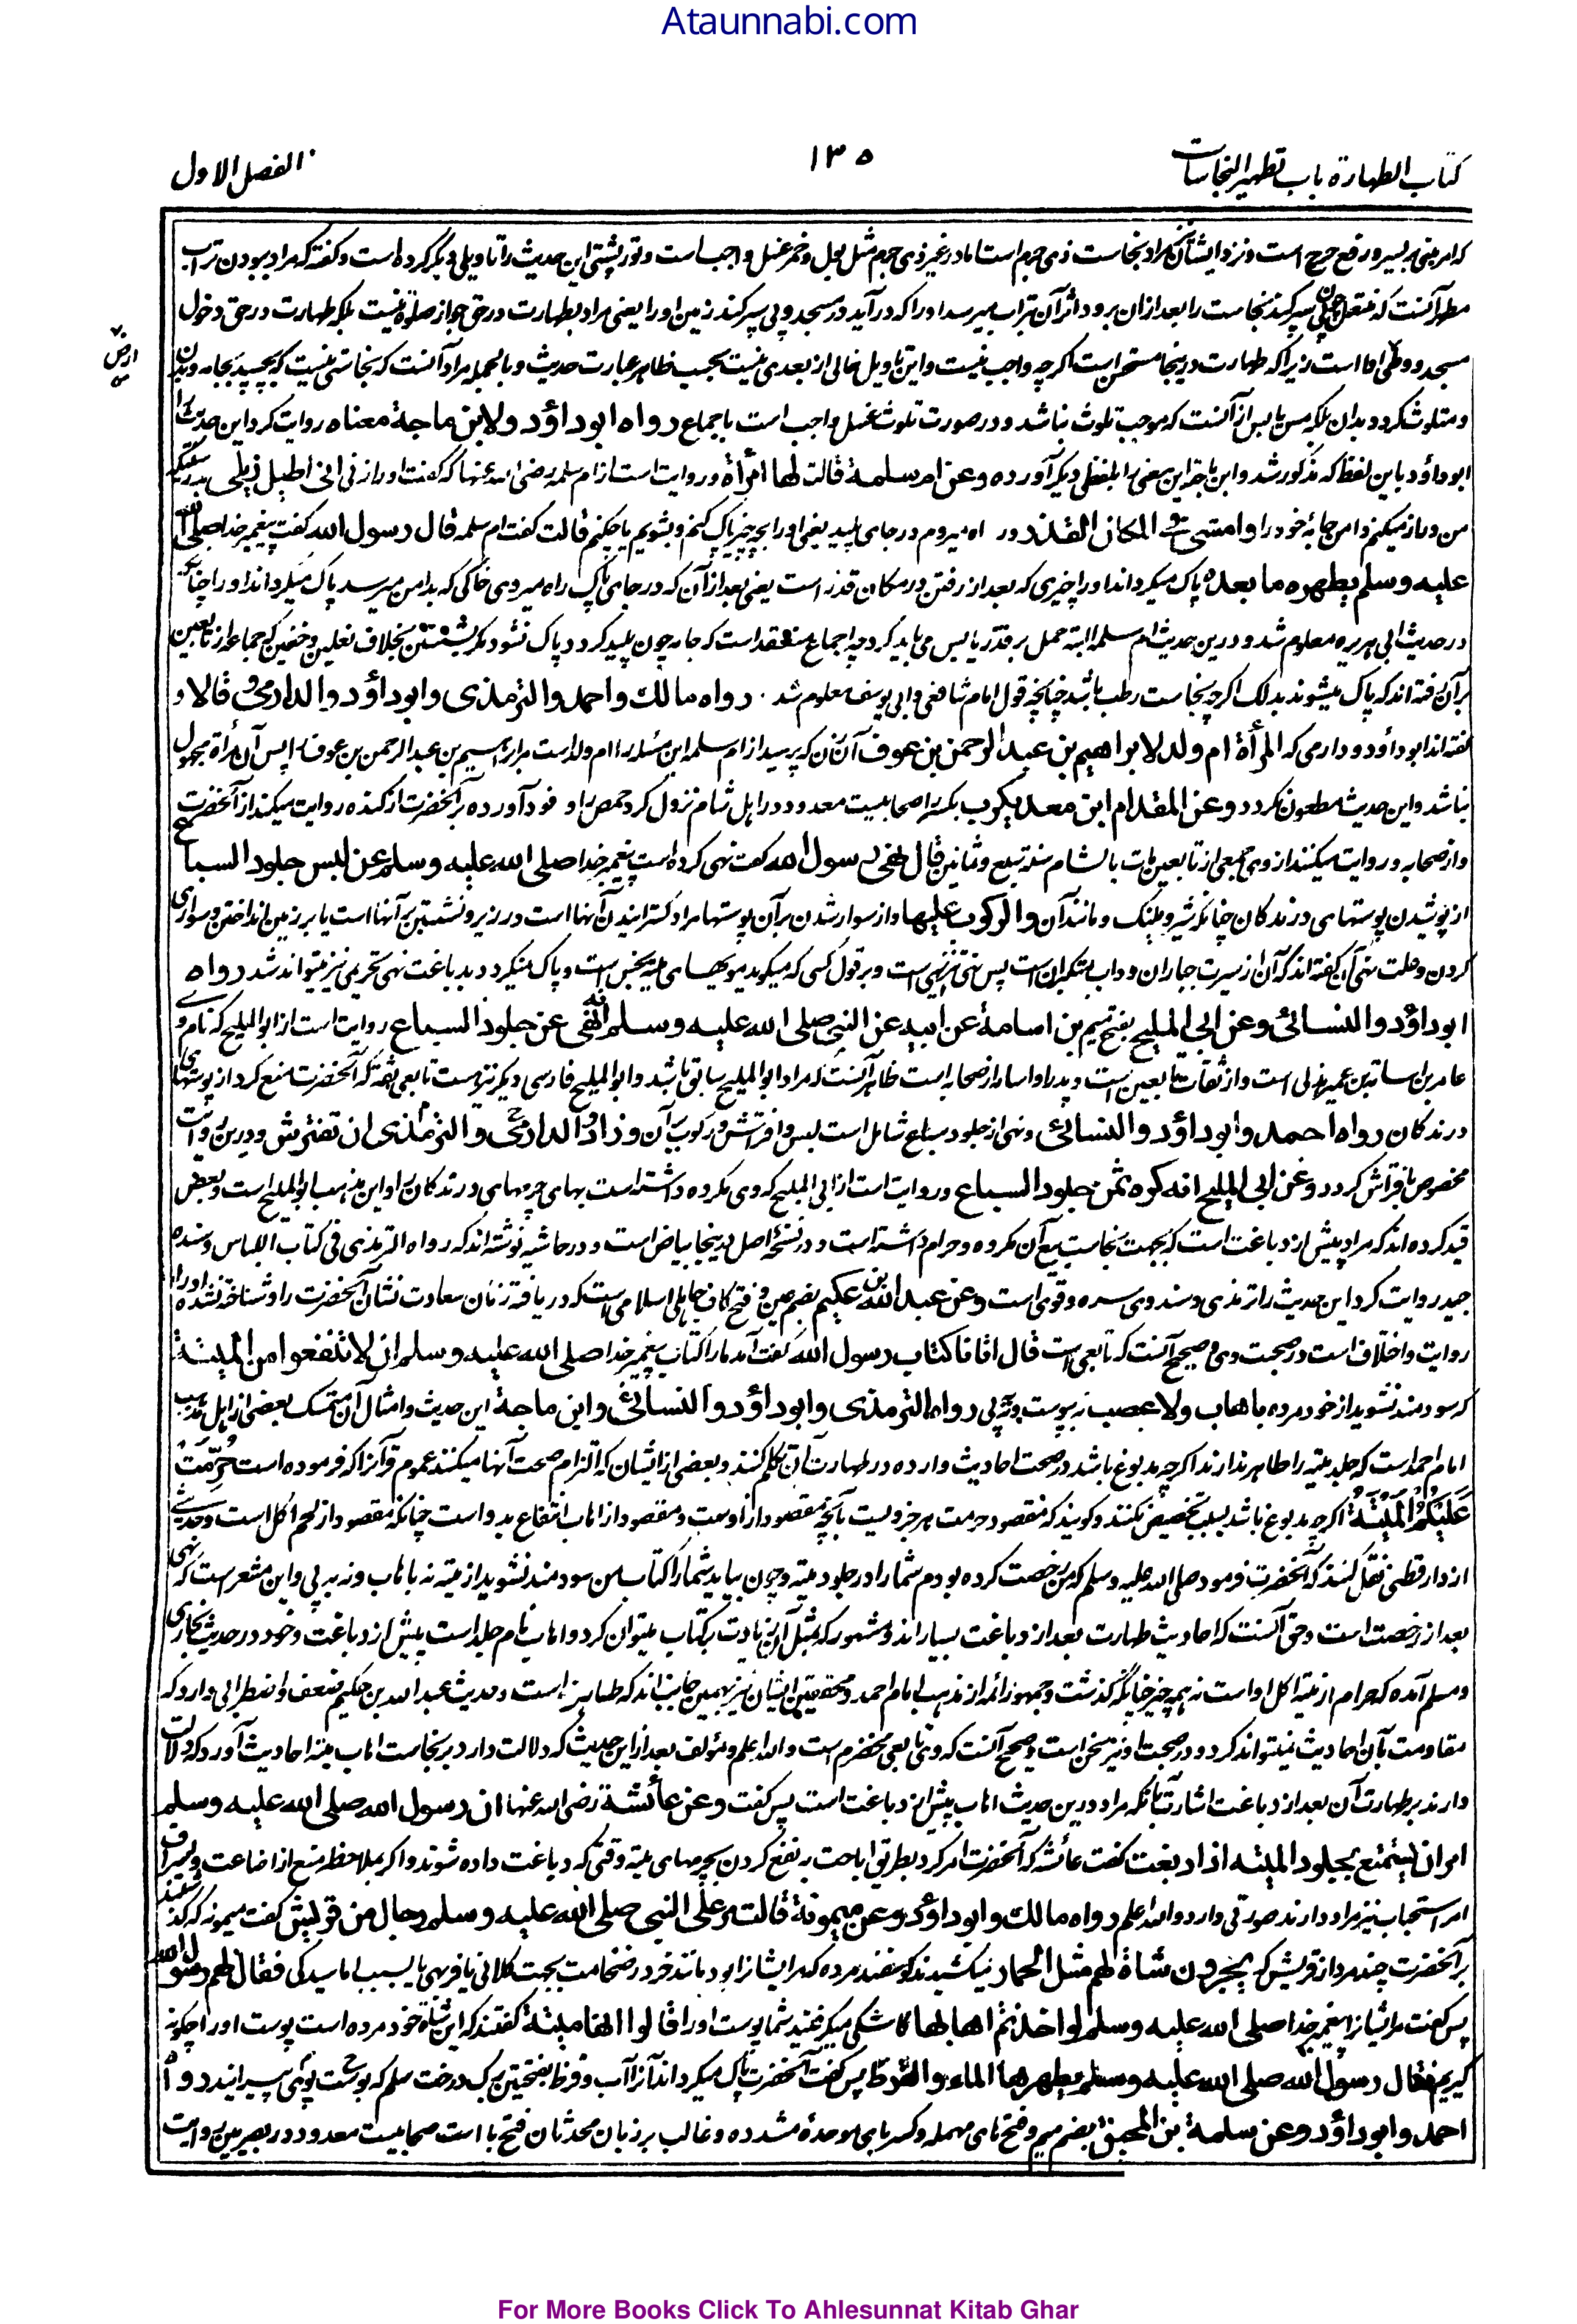 Ataunnabi.com
کتاب الطهارة باب تطهیر النجاسات
۱۳۵
الفصل الاول
که امر مبنی بر یسر و رفع حرج است و نزد ایشان که مراد نجاست ذی جرم است اما در غیر ذی جرم مثل بول و خمر غسل واجب است و تورپشتی این حدیث را تاویلی دیگر کرده است و گفته که مراد ببودن تراب
مطهر آنست که سپر کند نجاست را بعد ازان برود اثر آن بتراب میرسد او را که در آید در مسجد و پی سپر کند زمین او را یعنی مراد بطهارت در حق جواز صلوة نیست بلکه طهارت در حق دخول
مسجد و وطی است زیراکه طهارت درینجا مستحسن است اگرچه واجب نیست و این تاویل خالی از بعدی نیست بحسب ظاهر عبارت حدیث و بالجمله مراد آنست که نجاستی نیست که بچسپد بجامه و بدن
ارض
و متلوث گردد بدان بلکه از آنست که موجب تلوث نباشد و در صورت تلوث غسل واجب است باجماع رواه ابو داؤد ولابن ماجة معناه روایت کرد این حدیث را
ابو داؤد باین لفظ که مذکور شد و ابن ماجه این معنی را بلفظی دیگر آورده وعن ام سلمة قالت لها امرأة و روایت است از ام سلمه رضی الله عنها که گفت او را زنی انی اطیل ذیلی
من دراز میکنم دامن جامهٔ خود را وامشی فی المکان القذر و راه میروم در جای پلید یعنی او را بچه چیز پاک کنم و بشویم یا چکنم قالت گفت ام سلمه قال رسول الله گفت پیغمبر خدا صلی الله
علیه وسلم یطهره ما بعده پاک میگرداند او را چیزی که بعد از رفتن در مکان قذر است یعنی بعد از آن که در جای پاک راه میروی خاکی که بدامن میرسد پاک میگرداند او را چنانکه
در حدیث ابی هریره معلوم شد و درین حدیث ام سلمه البته حمل بر قذر یابس می باید کرد چه اجماع منعقد است که جامه چون پلید گردد پاک نشود مگر بشستن بخلاف نعلین و خفین که جماعه از تابعین
بر آن رفته اند که پاک میشوند بدلک اگرچه نجاست رطب باشد چنانچه قول امام شافعی و ابی یوسف معلوم شد۔ رواه مالك واحمد والترمذی وابو داؤد والدارمی وقالا و
گفته اند ابو داؤد و دارمی که المرأة ام ولد لابراهیم بن عبد الرحمن بن عوف آن زن که پرسید از ام سلمه این مسئله را ام ولد است مر ابراهیم بن عبد الرحمن بن عوف را پس آن مرأة مجهول
نباشد و این حدیث مطعون نگردد وعن المقدام ابن معدیکرب بکسر را صحابیست معدود در اهل شام نزول کرد حمص را و فود آورده بر آنحضرت از کنده روایت میکند از آنحضرت
و از صحابه و روایت میکنند از وی جمعی از تابعین مات بالشام سنة سبع وثمانین قال نهی رسول الله گفت نهی کرده است پیغمبر خدا صلی الله علیه وسلم عن لبس جلود السباع
از پوشیدن پوستهای درندگان چنانکه شیر و پلنگ و مانند آن والرکوب علیها و از سوار شدن بر آن پوستها مراد گسترانیدن آنها است در زیر و نشستن بر آنها است یا بر زین انداختن و سواری
کردن و علت نهی آن گفته اند که آن از سیرت جباران و داب متکبران است پس نهی تنزیهی است و بر قول کسی که میگوید مویهای میته نجس است و پاک نمیگردد بدباغت نهی تحریمی نیز میتواند شد رواه
ابو داؤد والنسائی وعن ابی الملیح بفتح میم بن اسامة عن ابیه عن النبی صلی الله علیه وسلم انه نهی عن جلود السباع روایت است از ابو الملیح که نام وی
عامر بن اسامة بن عمیر هذلی است و از ثقات تابعین است و پدر او اسامه از صحابه است ظاهر آنست که مراد ابو الملیح سابق باشد و ابو الملیح فارسی دیگر نیز هست تابعی ثقه که آنحضرت منع کرد از پوستهای
درندگان رواه احمد وابو داؤد والنسائی و نهی از جلود سباع شامل است لبس و افتراش و رکوب بر آن وزاد الدارمی والترمذی ان تفترش و درین روایت
مخصوص بافتراش گردد وعن ابی الملیح انه کره ثمن جلود السباع و روایت است از ابی الملیح که وی مکروه داشته است بهای چرمهای درندگان را و این مذهب ابو الملیح است و بعضی
قید کرده اند که مراد پیش از دباغت است که بجهت نجاست بیع آن مکروه و حرام داشته است و در نسخهٔ اصل درینجا بیاض است و در حاشیه نوشته اند که رواه الترمذی فی کتاب اللباس وسنده
جید روایت کرد این حدیث را ترمذی و سند وی سره و قوی است وعن عبد الله بن عکیم بضم عین و فتح کاف جاهلی اسلامی است که دریافته زمان سعادت نشان آنحضرت را و شناخته نشده او را
روایت و اختلاف است در صحبت وی و صحیح آنست که تابعی است قال اتانا کتاب رسول الله گفت آمد ما را کتاب پیغمبر خدا صلی الله علیه وسلم ان لا تنتفعوا من المیتة
که سودمند نشوید از خود مرده باهاب ولا عصب نه بپوست و نه پی رواه الترمذی وابو داؤد والنسائی وابن ماجة این حدیث و امثال آن متمسک بعضی از اهل مذهب
امام احمد است که جلد میته را طاهر ندارند اگرچه مدبوغ باشد در صحت احادیث وارده در طهارت آن تکلم کنند و بعضی از ایشان که التزام صحت آنها میکنند عموم قرآن را که فرموده است حُرِّمَتْ
عَلَیْکُمُ الْمَیْتَةُ اگرچه مدبوغ باشد بسبب تخصیص نکنند و گویند که مقصود حرمت هر جزویست بآنچه مقصود از اوست و مقصود از اهاب انتفاع بدو است چنانکه مقصود از لحم اکل است و حدیثی
از دارقطنی نقل کنند که آنحضرت فرمود صلی الله علیه وسلم که من رخصت کرده بودم شما را در جلود میته و چون بیاید شما را کتاب من سودمند نشوید از میته نه باهاب و نه به پی و این مشعر است که نهی
بعد از رخصت است و حق آنست که احادیث طهارت بعد از دباغت بسیار اند و مشهور که بمثل آن زیادت بر کتاب میتوان کرد و اهاب نام جلد است پیش از دباغت و خود در حدیث بخاری
و مسلم آمده که حرام از میته اکل او است نه همه چیز چنانکه گذشت و جمهور ائمه از مذهب امام احمد و محققین ایشان نیز بهمین جانب اند که طاهر است و حدیث عبد الله بن عکیم ضعف و اضطرابی دارد که
مقاومت بآن احادیث نمیتواند کرد و در صحبت او نیز سخن است و صحیح آنست که وی تابعی مخضرم است والله اعلم و مؤلف بعد از این حدیث که دلالت دارد بر نجاست اهاب میته احادیث آورد که دلالت
دارند بر طهارت آن بعد از دباغت اشارت بآنکه مراد درین حدیث اهاب پیش از دباغت است پس گفت وعن عائشة رضی الله عنها ان رسول الله صلی الله علیه وسلم
امر ان یستمتع بجلود المیته اذا دبغت گفت عائشه که آنحضرت امر کرد بطریق اباحت به نفع کردن بچرمهای میته وقتی که دباغت داده شوند و اگر بملاحظه منع از اضاعت و اسراف
امر استحباب نیز مراد دارند صورتی دارد والله اعلم رواه مالك وابو داؤد وعن میمونة قالت مر علی النبی صلی الله علیه وسلم رجال من قریش گفت میمونه که گذشتند
بر آنحضرت چند مرد از قریش که یجرون شاة لهم مثل الحمار میکشیدند گوسفند مرده که مر ایشان را بود مانند خر در ضخامت بجهت کلانی یا فربهی یا بسبب اماسیدگی فقال لهم رسول الله
پس گفت مر ایشان را پیغمبر خدا صلی الله علیه وسلم لو اخذتم اهابها کاشکی میگرفتید شما پوست او را قالوا انها میتة گفتند که این شاة خود مرده است پوست او را چگونه
گیریم فقال رسول الله صلی الله علیه وسلم یطهرها الماء والقرظ پس گفت آنحضرت پاک میگرداند آنرا آب و قرظ بفتحتین برگ درخت سلم که پوست بوی پیرایند رواه
احمد وابو داؤد وعن سلمة بن المحبق بضم میم و فتح حای مهمله و کسر بای موحده مشدده و غالب بر زبان محدثان فتح با است صحابیست معدود در بصریین روایت
For More Books Click To Ahlesunnat Kitab Ghar